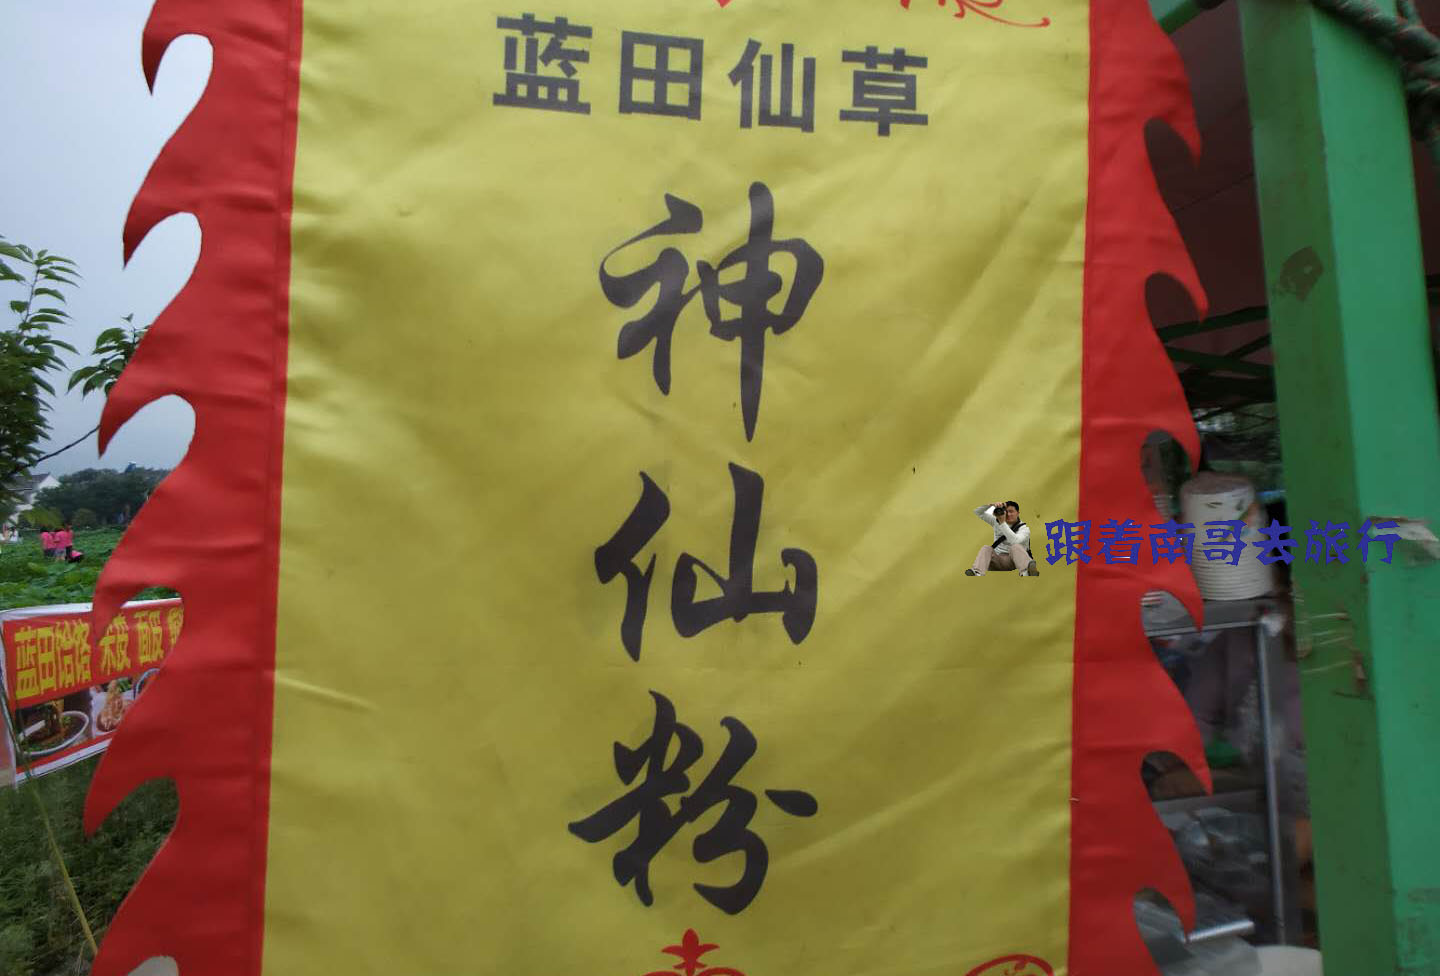 蓝田仙草
神仙粉
跟着南哥去旅行
蓝田饸饹 米皮 面皮